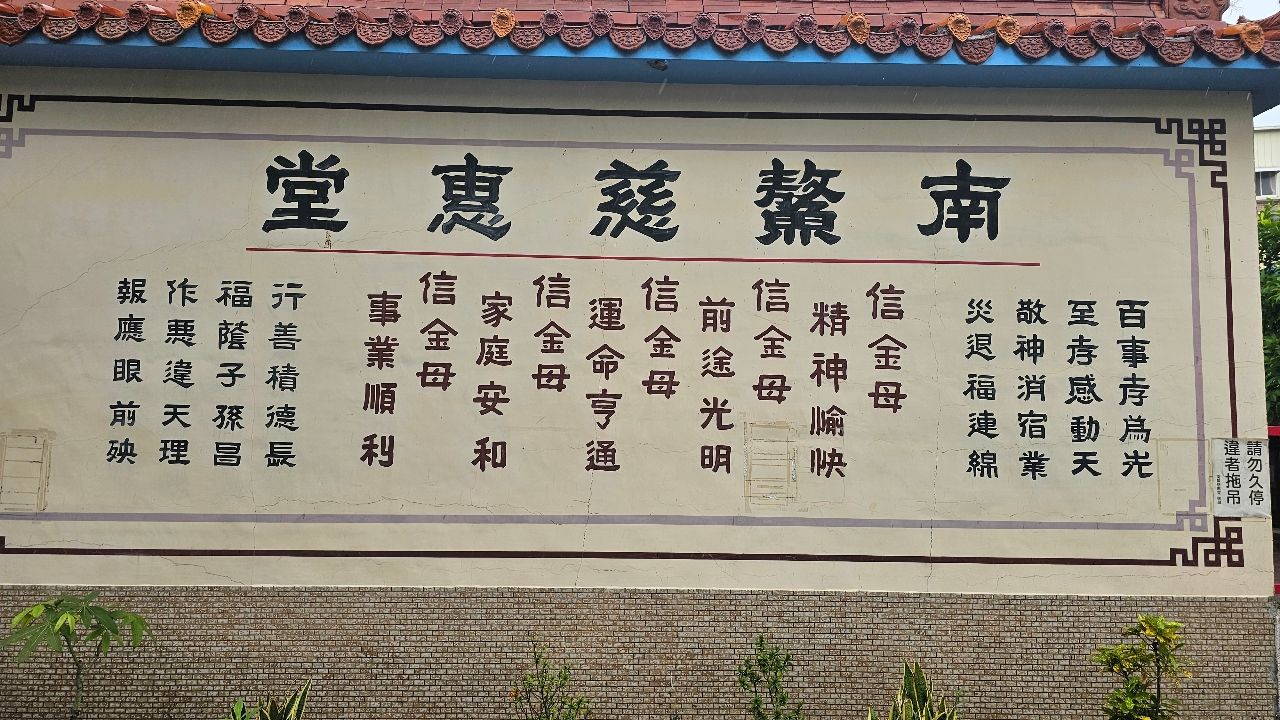 南鰲慈惠堂
百事孝為先
至孝感動天
敬神消宿業
災退福連綿
信金母
精神愉快
信金母
前途光明
信金母
運命亨通
信金母
家庭安和
信金母
事業順利
行善積德長
福蔭子孫昌
作惡違天理
報應眼前殃
請勿久停
違者拖吊